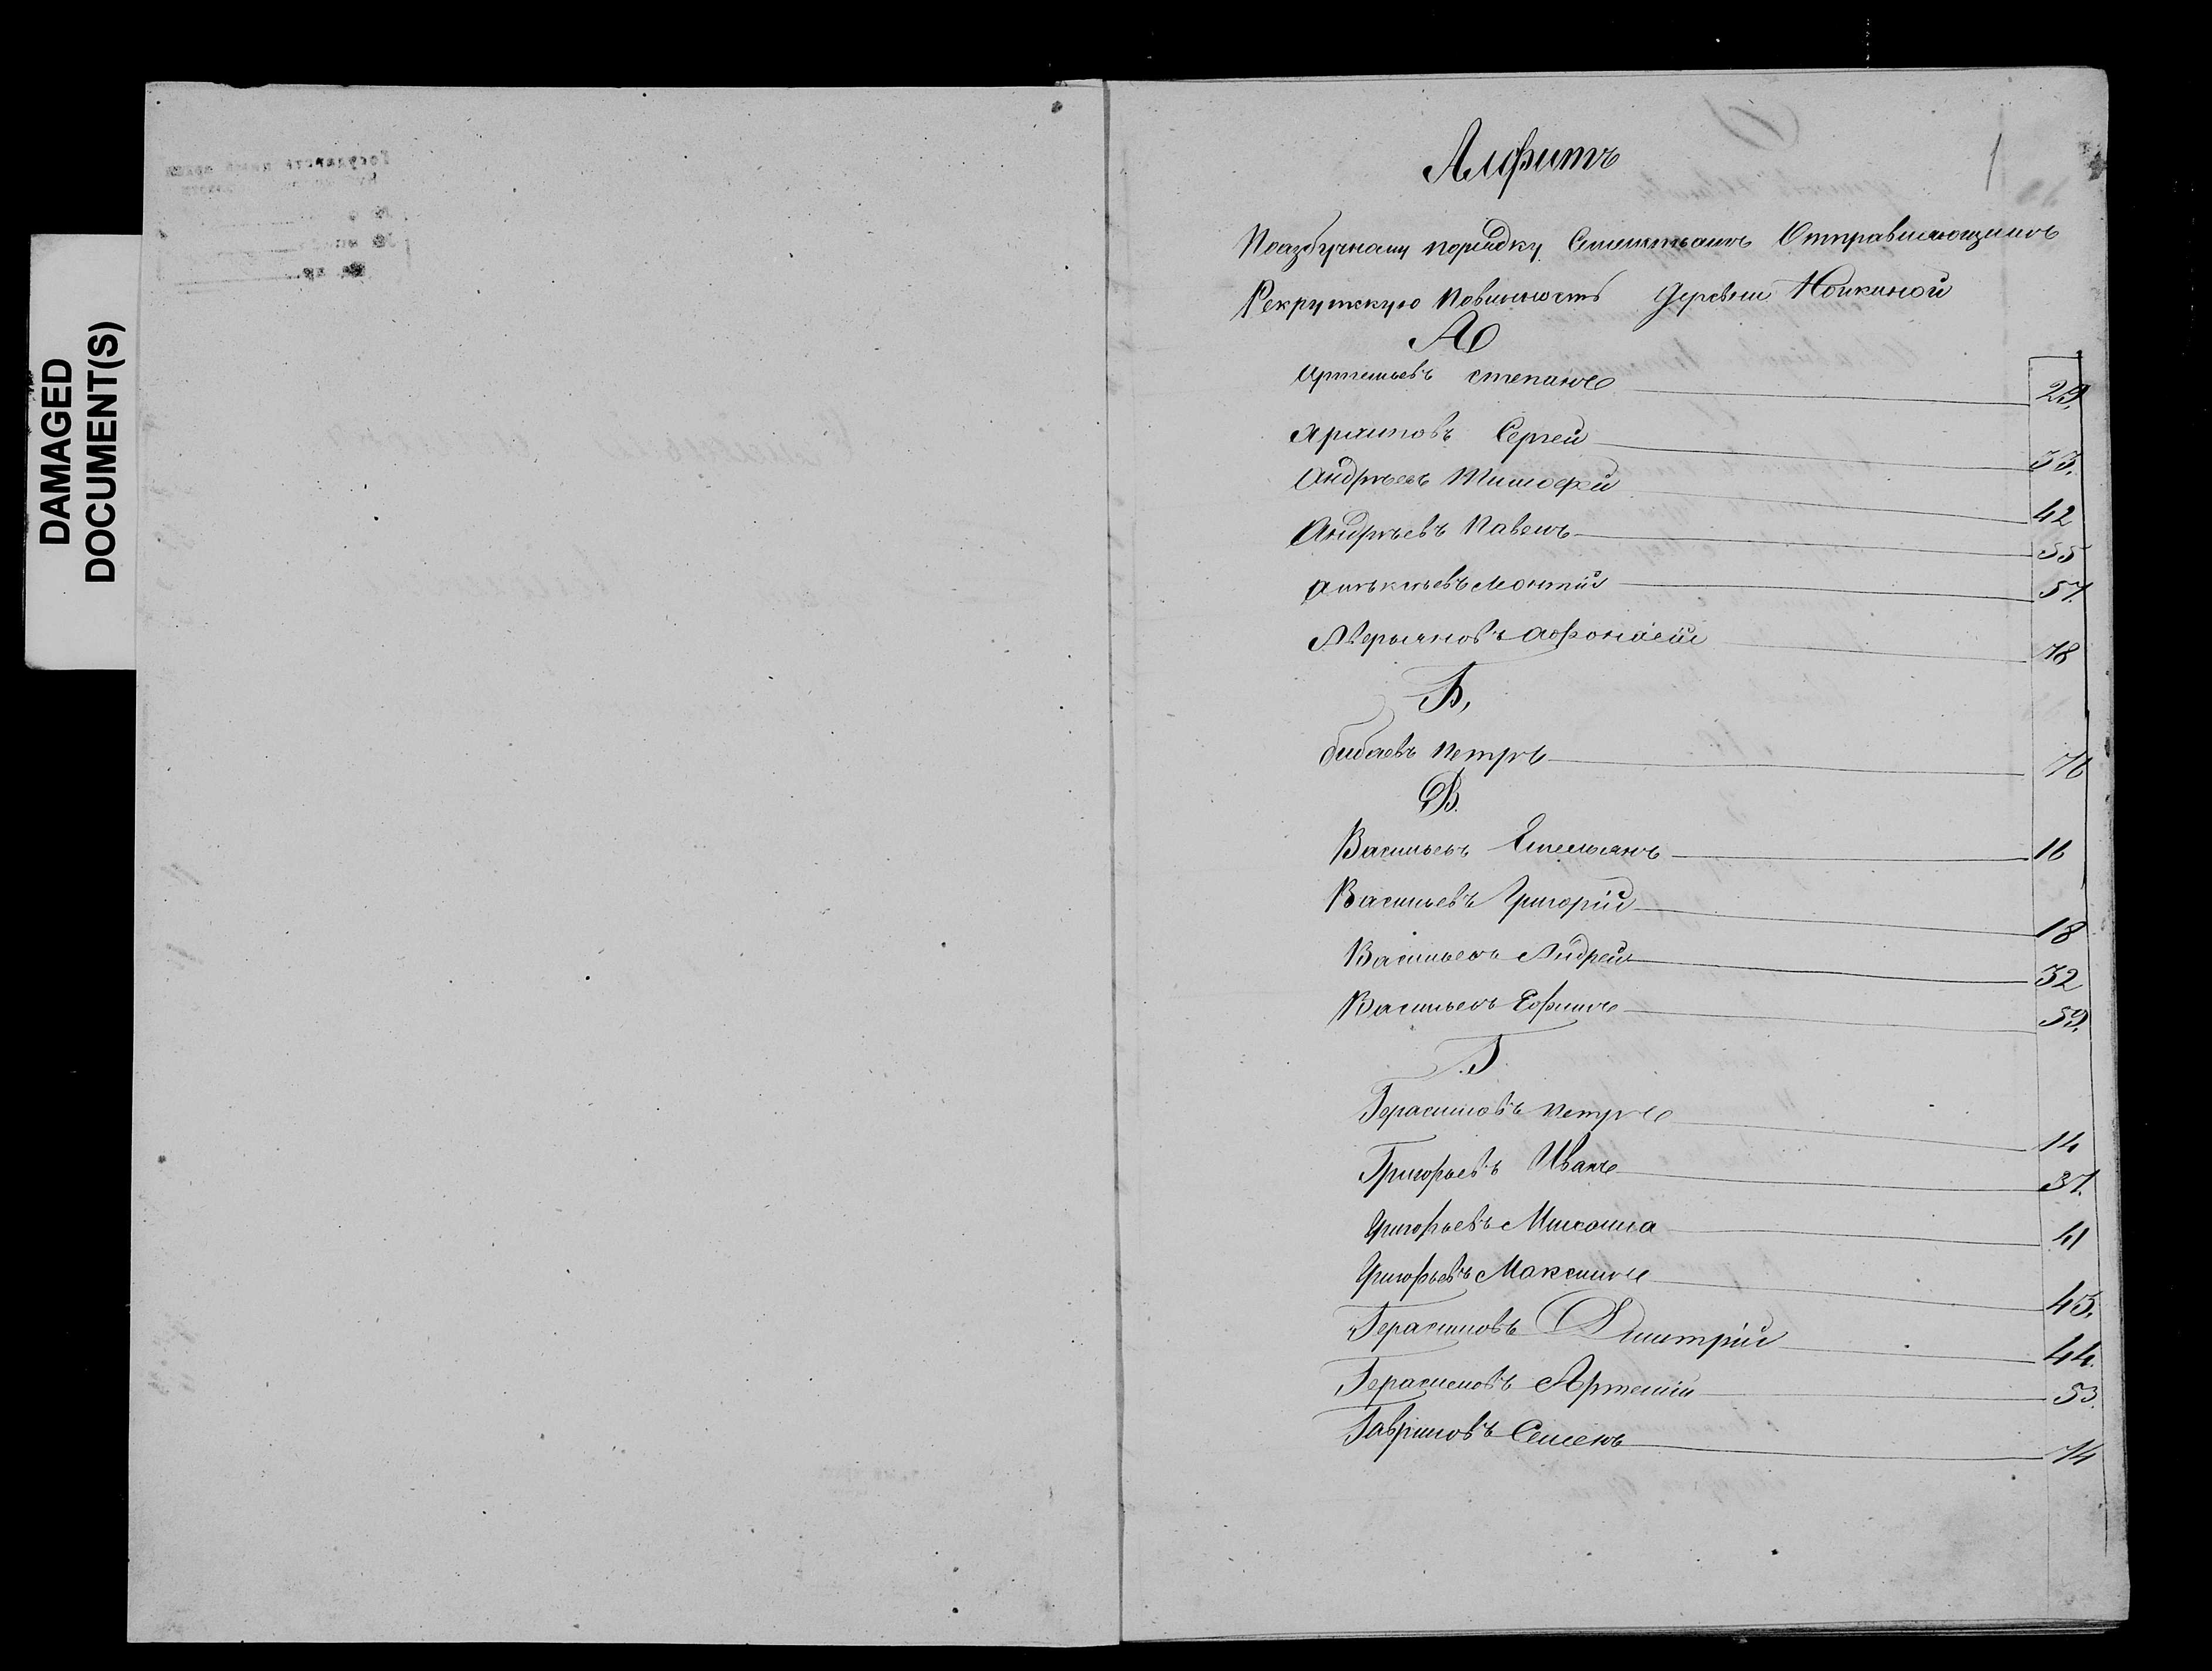 DAMAGED
DOCUMENT(S)
1
Алфитъ
Поазбучному порядку Семействамъ Отправляющимъ
Рекрутскую Повинность деревни
А
Артемьевъ Степанъ 29.
Архиповъ Сергей 33.
Андреевъ Тимофей 42
Андреевъ Павелъ 55
Леонтий 57.
Аверьяновъ Афонасей 78
Б,
Петръ 76
В.
Васильевъ Емельянъ 16
Васильевъ Григорій 18
Васильевъ Андрей 32
Васильевъ Ефимъ 59.
Г.
Герасимовъ Петръ 14
Григорьевъ Иванъ 37.
Григорьевъ Михаила 41
Григорьевъ Максимъ 43.
Герасимовъ Дмитрій 44.
Герасимовъ Артемій 53.
Гавриловъ Семенъ 74